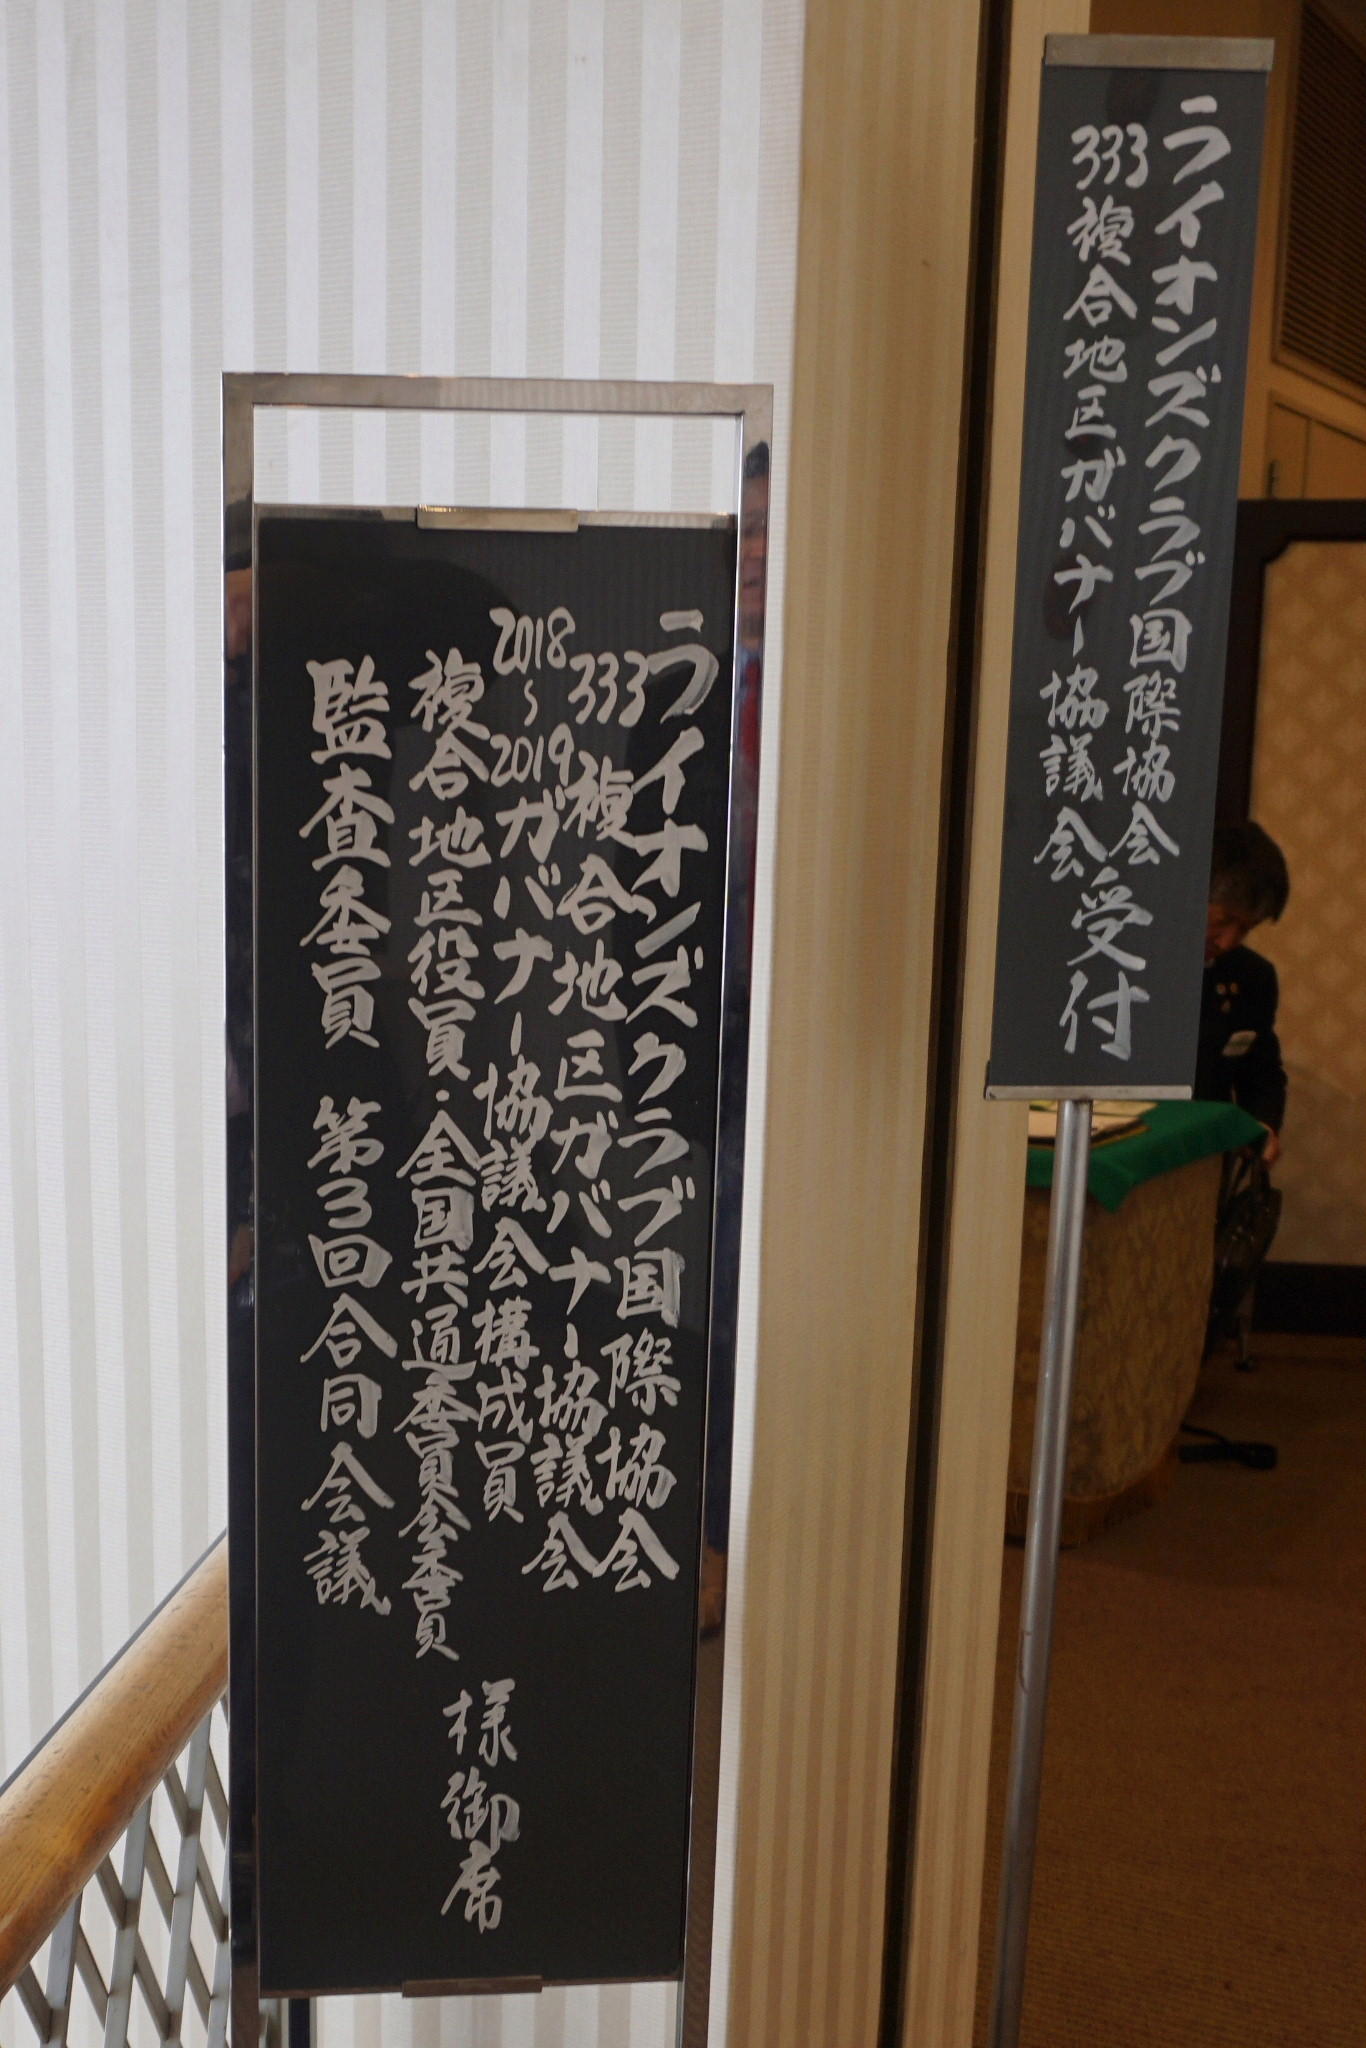 ライオンズクラブ国際協会
333複合地区ガバナー協議会
受付
ライオンズクラブ国際協会
333複合地区ガバナー協議会
2018〜2019ガバナー協議会構成員
複合地区役員・全国共通委員会委員
監査委員 第3回合同会議
様御席